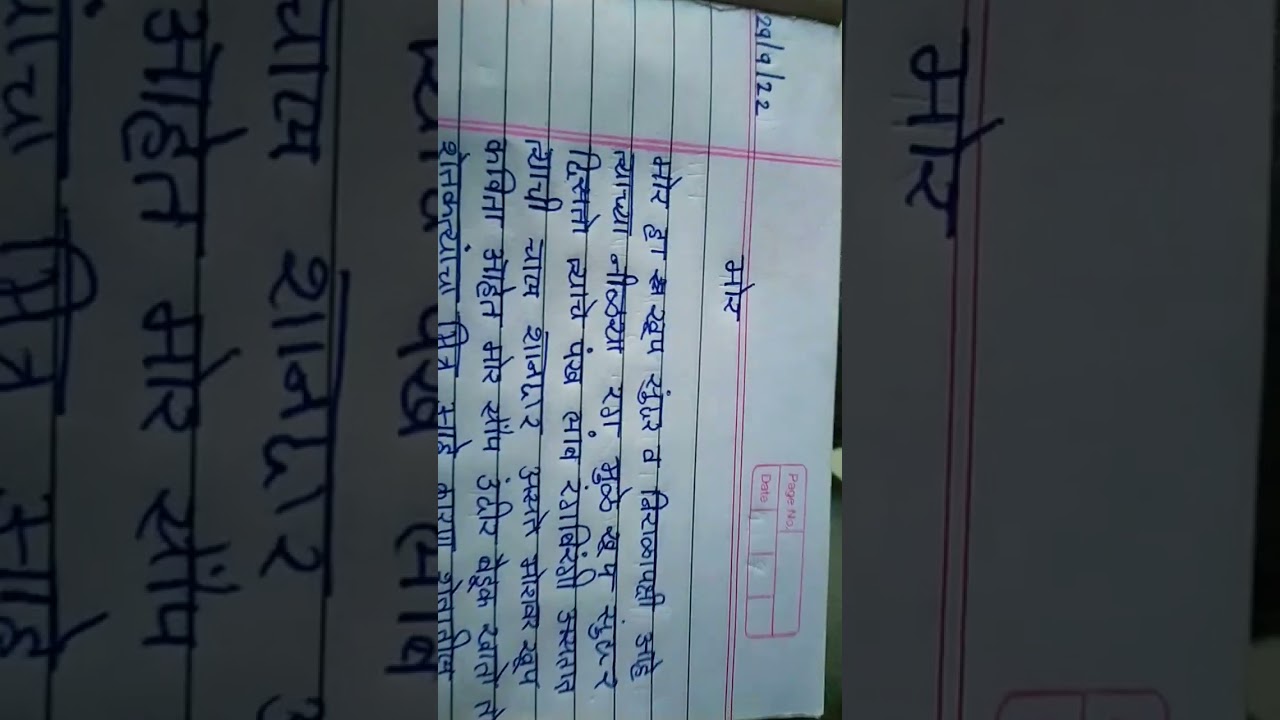 29/9/22
Page No.
Date
मोर
मोर हा खूप सुंदर व विराळापक्षी आहे
त्याच्या नीळ्या रंगा मुळे खूप सुंदर
दिसतो त्याचे पंख लांब रंगबिरंगी असतात
त्याची चाल शानदार असते मोरावर खूप
कविता आहेत मोर साँप उंदीर बेडूक खातो ते
शेतकऱ्यांचा मित्र आहे कारण शेतातील